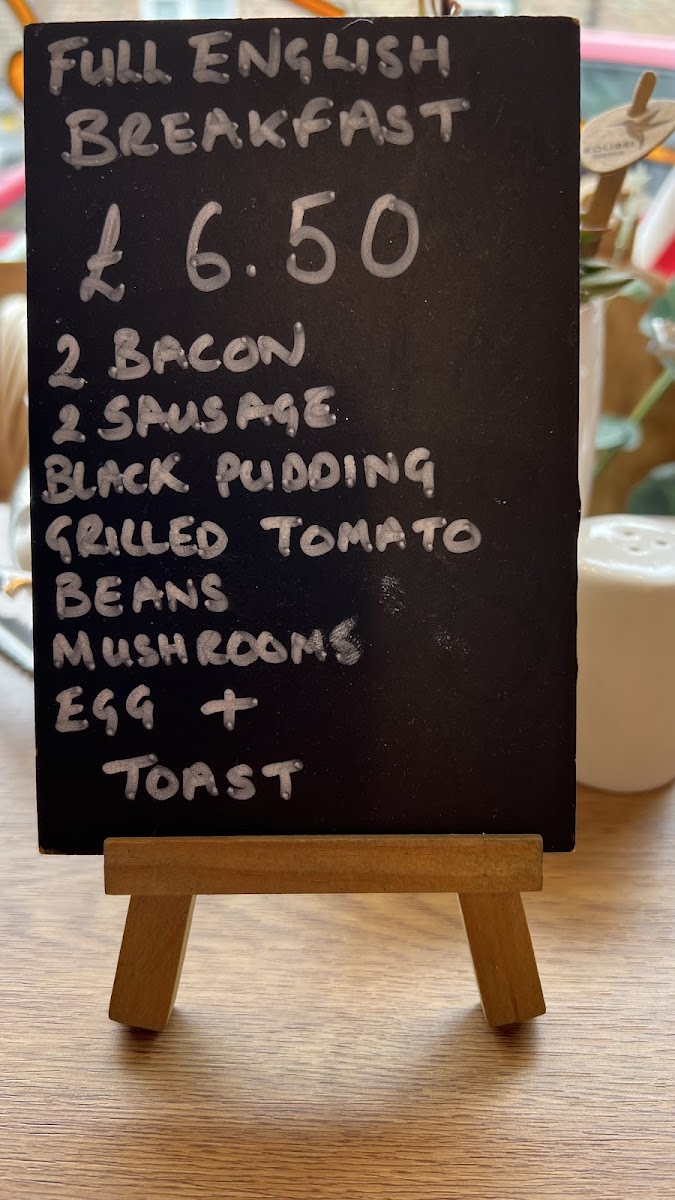 FULL ENGLISH
BREAKFAST
£ 6.50
2 BACON
2 SAUSAGE
BLACK PUDDING
GRILLED TOMATO
BEANS
MUSHROOMS
EGG +
TOAST
KOLIBRI